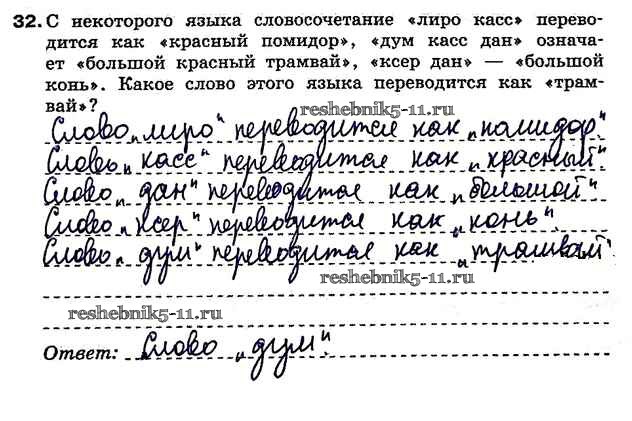 32. С некоторого языка словосочетание «лиро касс» перево-
дится как «красный помидор», «дум касс дан» означа-
ет «большой красный трамвай», «ксер дан» — «большой
конь». Какое слово этого языка переводится как «трам-
вай»?
reshebnik5-11.ru
Слово „лиро" переводится как „помидор".
Слово „касс" переводится как „красный".
Слово „дан" переводится как „большой"
Слово „ксер" переводится как „конь".
Слово „дум" переводится как „трамвай"
reshebnik5-11.ru
reshebnik5-11.ru
Ответ: Слово „дум".